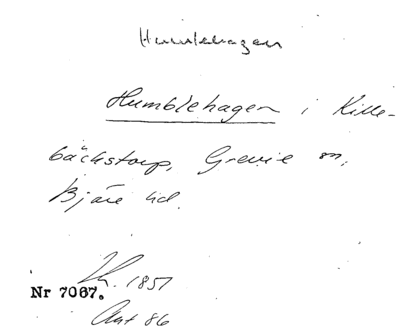 Humlehagen
Humblehagen i Kille-
bäckstorp, Grevie sn,
Bjäre hd.
1851
Nr 7067.
Akt 86